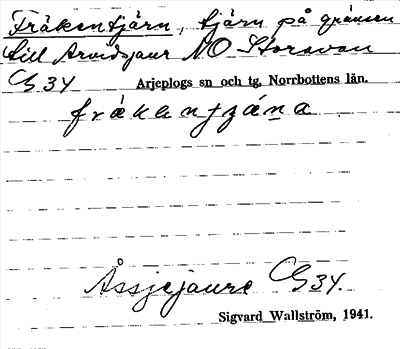 Fräkentjärn, tjärn på gränsen
till Arvidsjaur NO Storavan
G34 Arjeplogs sn och tg, Norrbottens län.
frákentjána
Åssjejaure G34.
Sigvard Wallström, 1941.